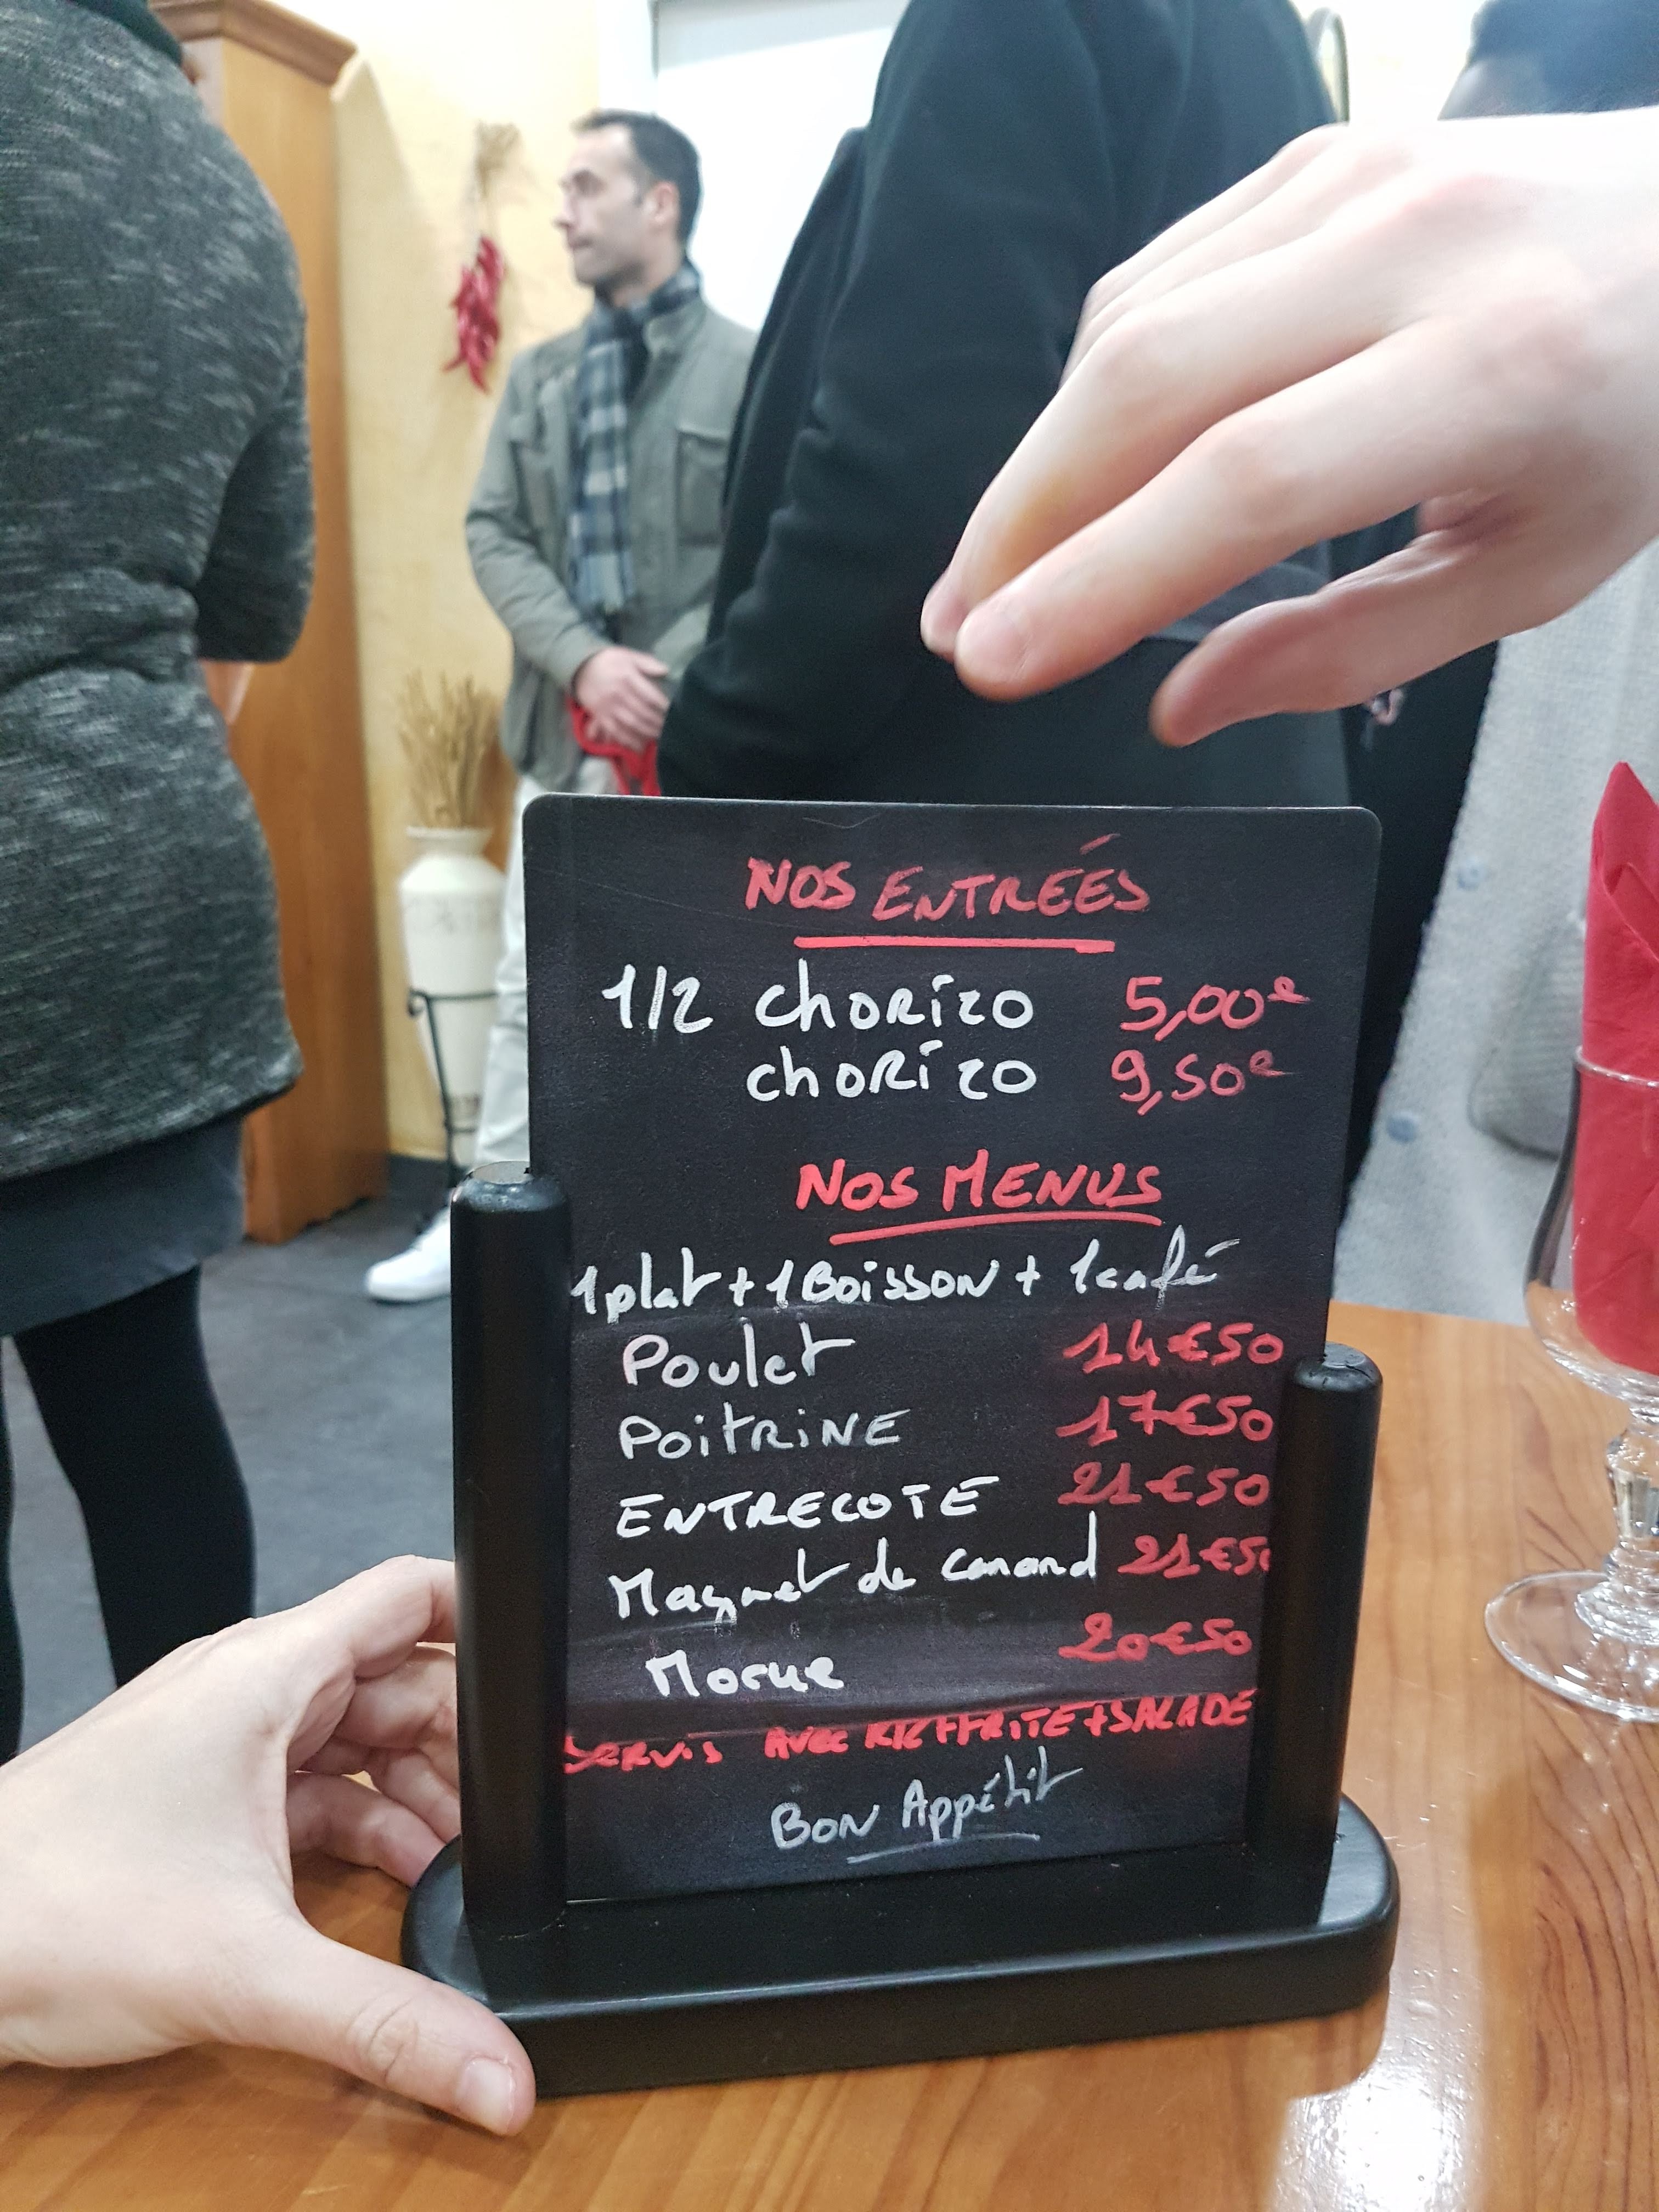 NOS ENTRÉES
1/2 chorizo 5,00€
chorizo 9,50€
NOS MENUS
1 plat + 1 Boisson + 1 café
Poulet 14€50
POITRINE 17€50
ENTRECOTE 21€50
Magret de canard 21€50
Morue 20€50
SERVIS AVEC RIZ+FRITE+SALADE
BON Appétit